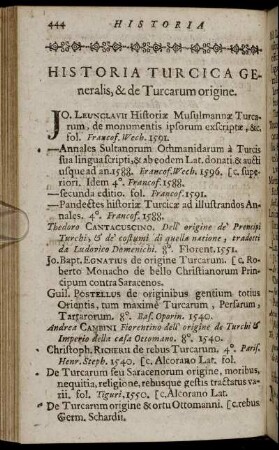 444 HISTORIA
HISTORIA TURCICA GE-
neralis, & de Turcarum origine.
JO. LEUNCLAVII Historiæ Musulmannæ Turca-
rum, de monumentis ipsorum exscriptæ, &c.
fol. Francof. Wech. 1591.
—Annales Sultanorum Othmanidarum à Turcis
sua lingua scripti, & ab eodem Lat. donati, & aucti
usque ad an. 1588. Francof. Wech. 1596. [c. supe-
riori. Idem 4°. Francof. 1588.
—secunda editio. fol. Francof. 1591.
—Pandectes historiæ Turcicæ ad illustrandos An-
nales. 4°. Francof. 1588.
Theodoro CANTACUSCINO. Dell' origine de' Prencipi
Turchi, & de' costumi di quella natione, tradotti
da Ludovico Domenichi. 8°. Florent. 1551.
Jo. Bapt. EGNATIUS de origine Turcarum. [c. Ro-
berto Monacho de bello Christianorum Prin-
cipum contra Saracenos.
Guil. POSTELLUS de originibus gentium totius
Orientis, tum maximè Turcarum, Persarum,
Tartarorum. 8°. Bas. Oporin. 1540.
Andrea CAMBINI Fiorentino dell' origine de Turchi &
Imperio della casa Ottomano. 8°. 1540.
Christoph. RICHERI de rebus Turcarum. 4°. Paris.
Henr. Steph. 1540. [c. Alcorano Lat. fol.
De Turcarum seu Saracenorum origine, moribus,
nequitia, religione, rebusque gestis tractatus va-
rii. fol. Tiguri, 1550. [c. Alcorano Lat.
De Turcarum origine & ortu Ottomanni. [c. rebus
Germ. Schardii.